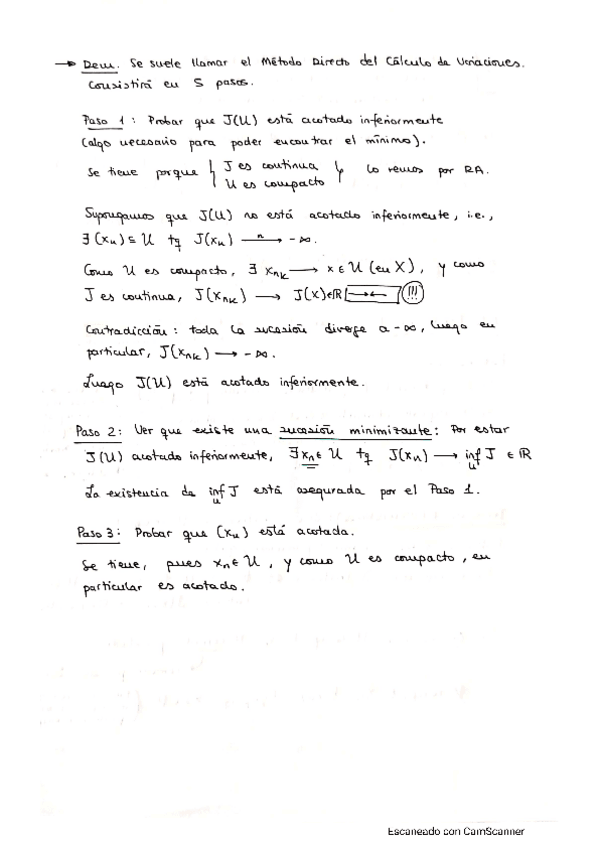 → Dem. Se suele llamar el Método Directo del Cálculo de Variaciones.
Consistirá en 5 pasos.
Paso 1: Probar que J(U) está acotado inferiormente
(algo necesario para poder encontrar el mínimo).
Se tiene porque { J es continua
U es compacto } Lo vemos por RA.
Supongamos que J(U) no está acotado inferiormente, i.e.,
∃ (xn) ⊆ U tq J(xn) —n→ -∞.
Como U es compacto, ∃ xnk → x ∈ U (en X), y como
J es continua, J(xnk) → J(x) ∈ ℝ →← (!!!)
Contradicción: toda la sucesión diverge a -∞, luego en
particular, J(xnk) → -∞.
Luego J(U) está acotado inferiormente.
Paso 2: Ver que existe una sucesión minimizante: Por estar
J(U) acotado inferiormente, ∃ xn ∈ U tq J(xn) → inf J ∈ ℝ
U
La existencia de inf J está asegurada por el Paso 1.
U
Paso 3: Probar que (xn) está acotada.
Se tiene, pues xn ∈ U, y como U es compacto, en
particular es acotado.
Escaneado con CamScanner